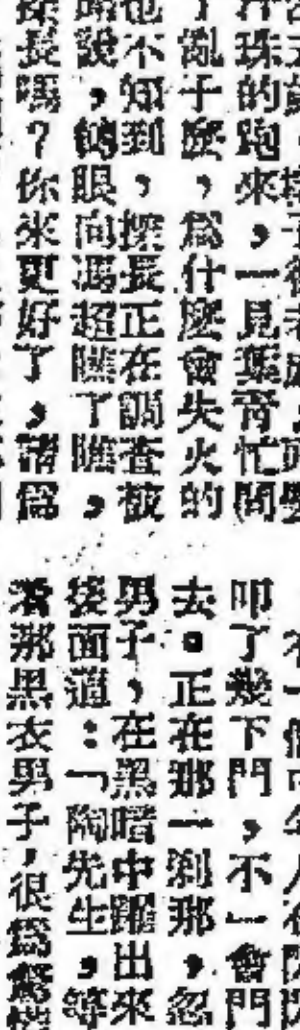 汗珠的跑來，一見葉青，忙問
了亂子麽，爲什麽會失火的
也不知到，探長正在調查，被
說，眼向馮超瞧了瞧，
長嗎？你來更好了，諸爲
叩了幾下門，不一會門
去。正在那一刹那，忽
男子，在黑暗中躍出來
後面道：「陶先生，等
着那黑衣男子，很爲驚